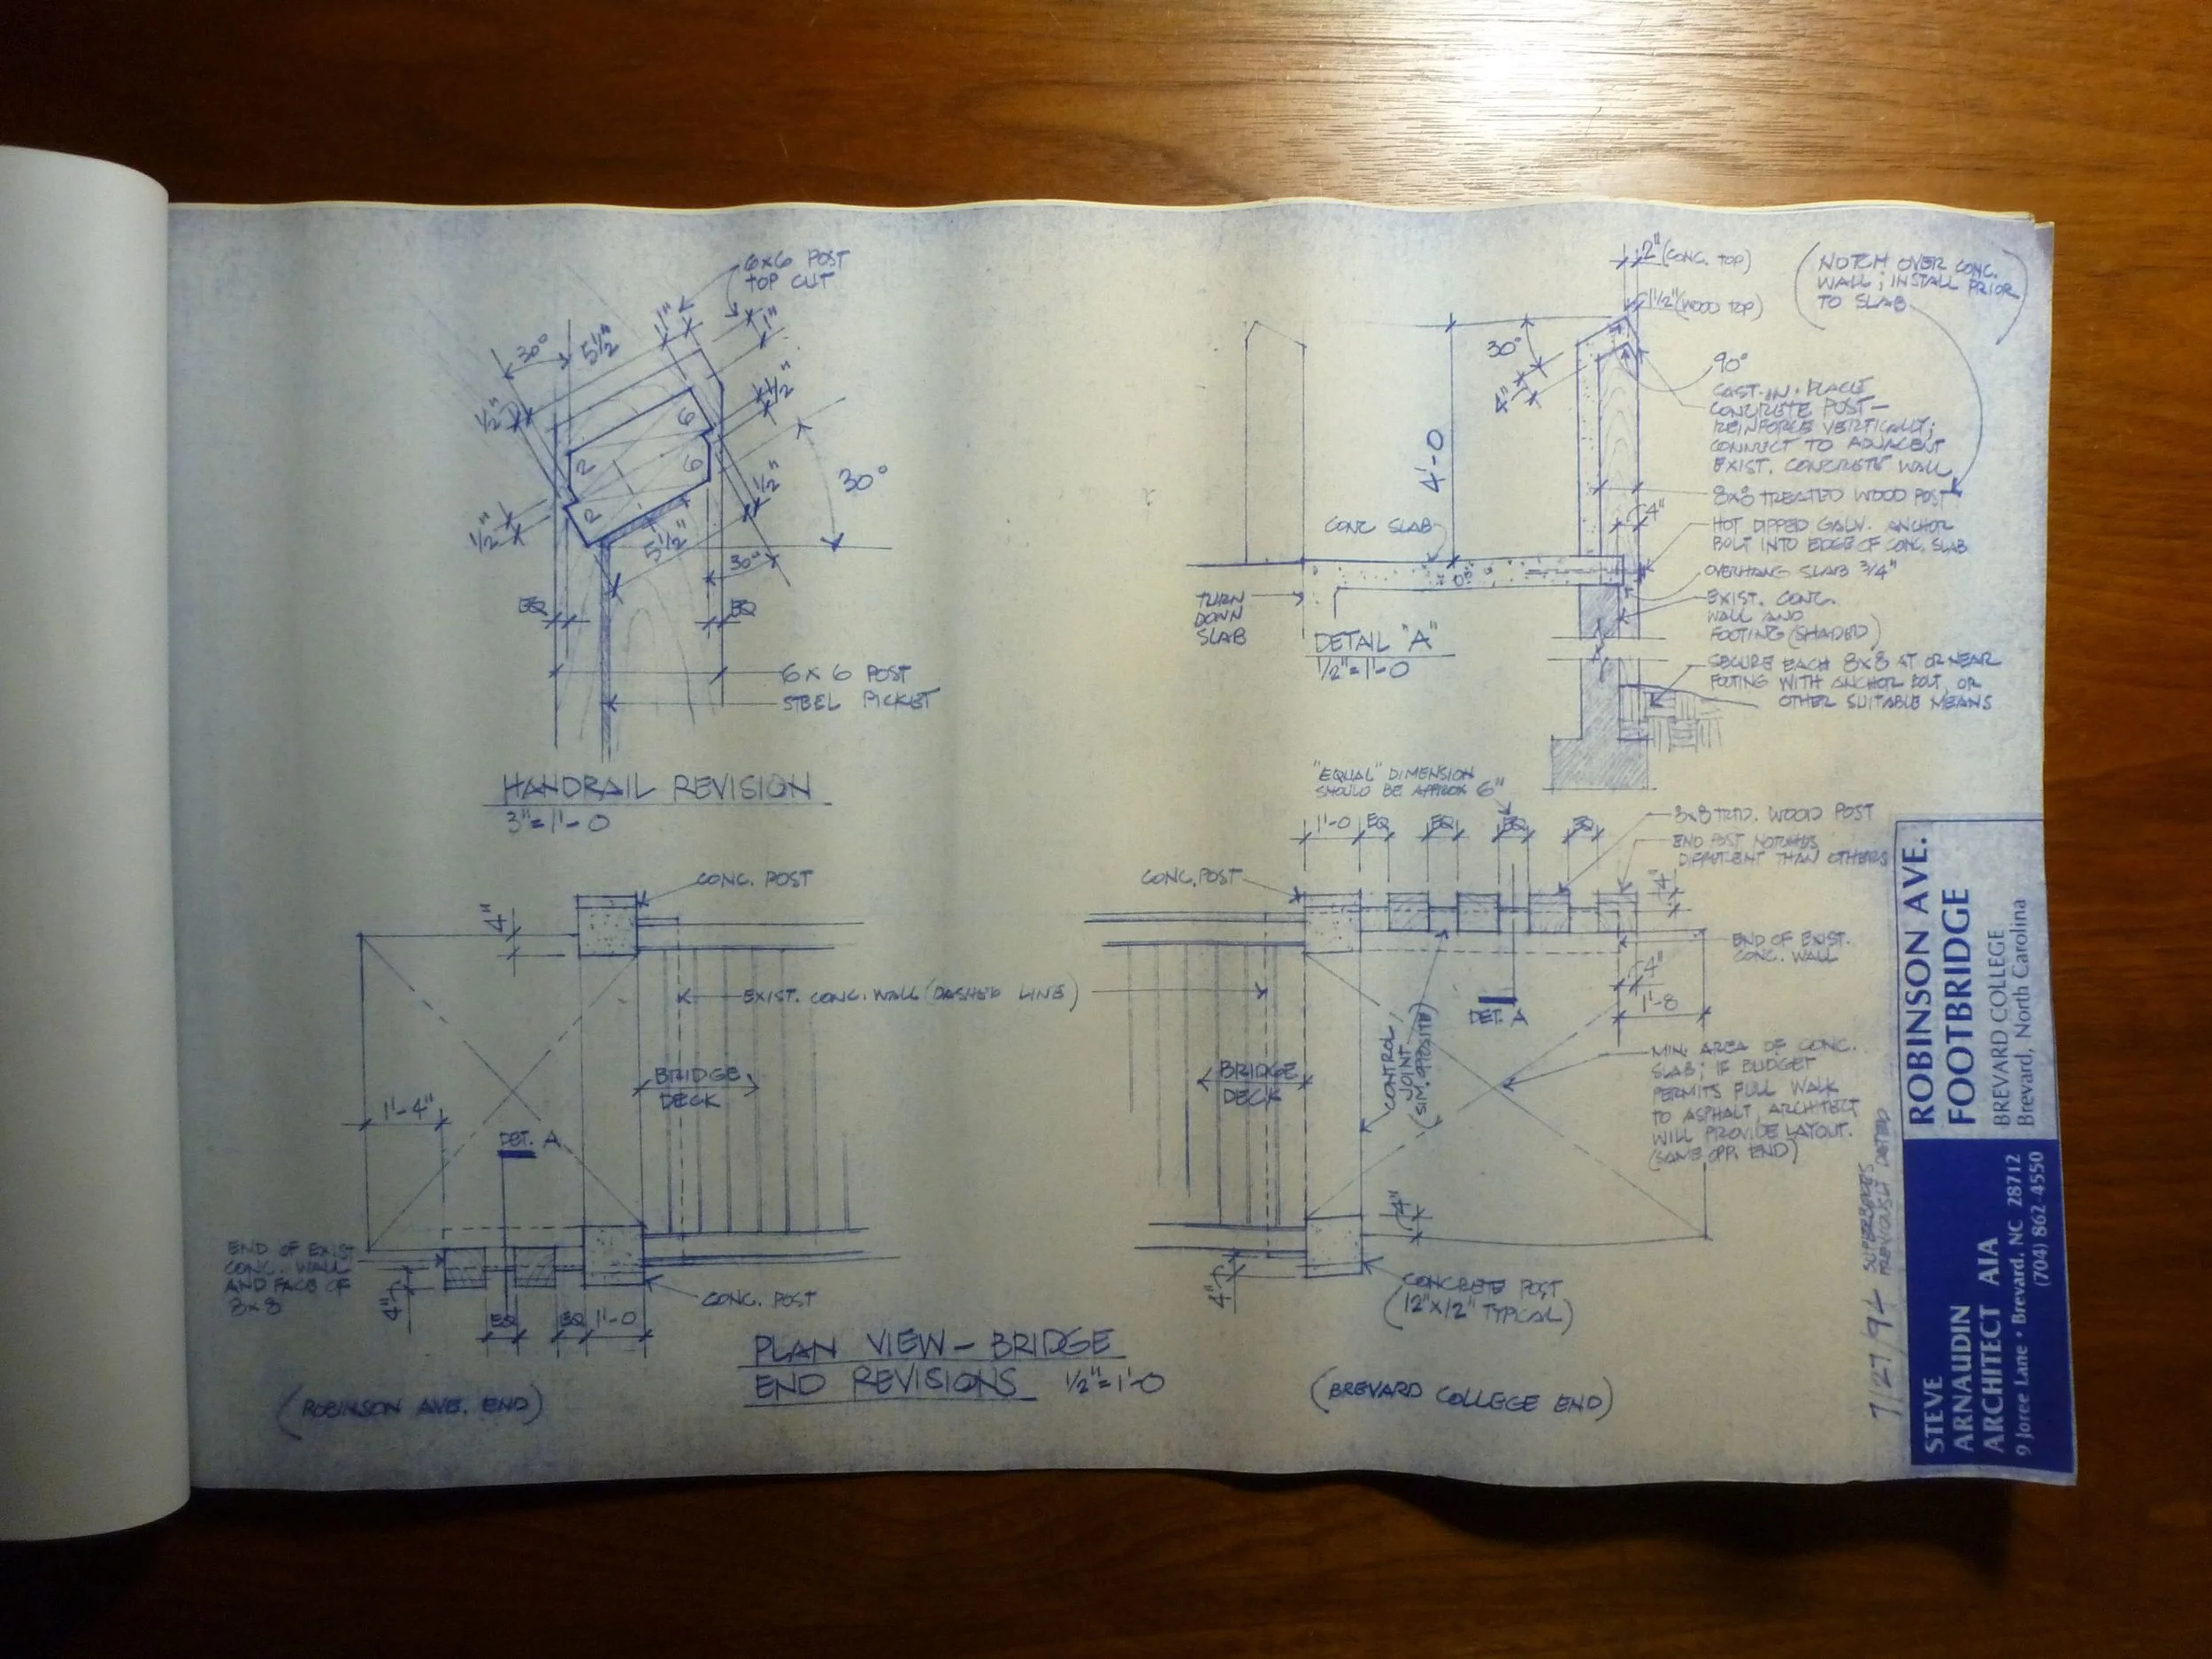 6x6 POST
TOP CUT
1"
1"
30°
5 1/2"
1/2"
1/2"
6
2
6
2
1/2"
30°
1/2"
5 1/2"
30°
EQ
EQ
6 x 6 POST
STEEL PICKET
HANDRAIL REVISION
3"=1'-0
2" (CONC. TOP)
1 1/2" (WOOD TOP)
(NOTCH OVER CONC.
WALL; INSTALL PRIOR
TO SLAB)
30°
4"
90°
CAST-IN-PLACE
CONCRETE POST-
REINFORCE VERTICALLY;
CONNECT TO ADJACENT
EXIST. CONCRETE WALL
4'-0
8x8 TREATED WOOD POST
4"
CONC SLAB
HOT DIPPED GALV. ANCHOR
BOLT INTO EDGE OF CONC. SLAB
OVERHANG SLAB 3/4"
TURN
DOWN
SLAB
EXIST. CONC.
WALL AND
FOOTING (SHADED)
DETAIL "A"
1/2"=1'-0
SECURE EACH 8x8 AT OR NEAR
FOOTING WITH ANCHOR BOLT, OR
OTHER SUITABLE MEANS
"EQUAL" DIMENSION
SHOULD BE APPROX 6"
1'-0 EQ EQ EQ EQ
8x8 TRTD. WOOD POST
END POST NOTCHED
DIFFERENT THAN OTHERS
CONC. POST
4"
CONC. POST
4"
END OF EXIST.
CONC. WALL
EXIST. CONC. WALL (DASHED LINE)
4"
1'-8
DET. A
CONTROL
JOINT
(SIM. OPPOSITE)
BRIDGE
DECK
BRIDGE
DECK
MIN. AREA OF CONC.
SLAB; IF BUDGET
PERMITS FULL WALK
TO ASPHALT, ARCHITECT
WILL PROVIDE LAYOUT.
(SAME OPP. END)
1'-4"
DET. A
END OF EXIST
CONC. WALL
AND FACE OF
8x8
4"
EQ EQ 1'-0
CONC. POST
4"
4"
CONCRETE POST
(12"x12" TYPICAL)
PLAN VIEW - BRIDGE
END REVISIONS 1/2"=1'-0
(ROBINSON AVE. END)
(BREVARD COLLEGE END)
7/27/94 SUPERSEDES
PREVIOUSLY DATED
ROBINSON AVE.
FOOTBRIDGE
BREVARD COLLEGE
Brevard, North Carolina
STEVE
ARNAUDIN
ARCHITECT AIA
9 Joree Lane • Brevard, NC 28712
(704) 862-4550